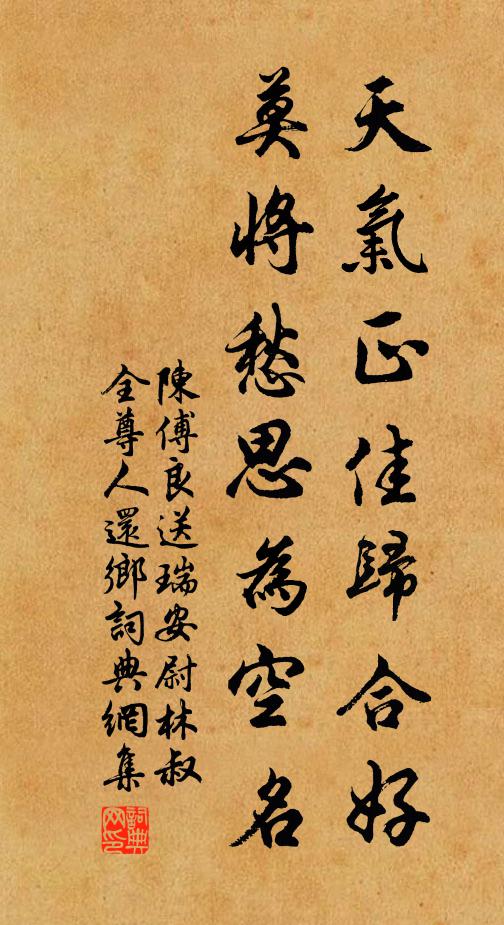 天氣正佳歸合好
莫將愁思為空名
陳傅良送瑞安尉林叔
全尊人還鄉詞典網集
詞典
网印